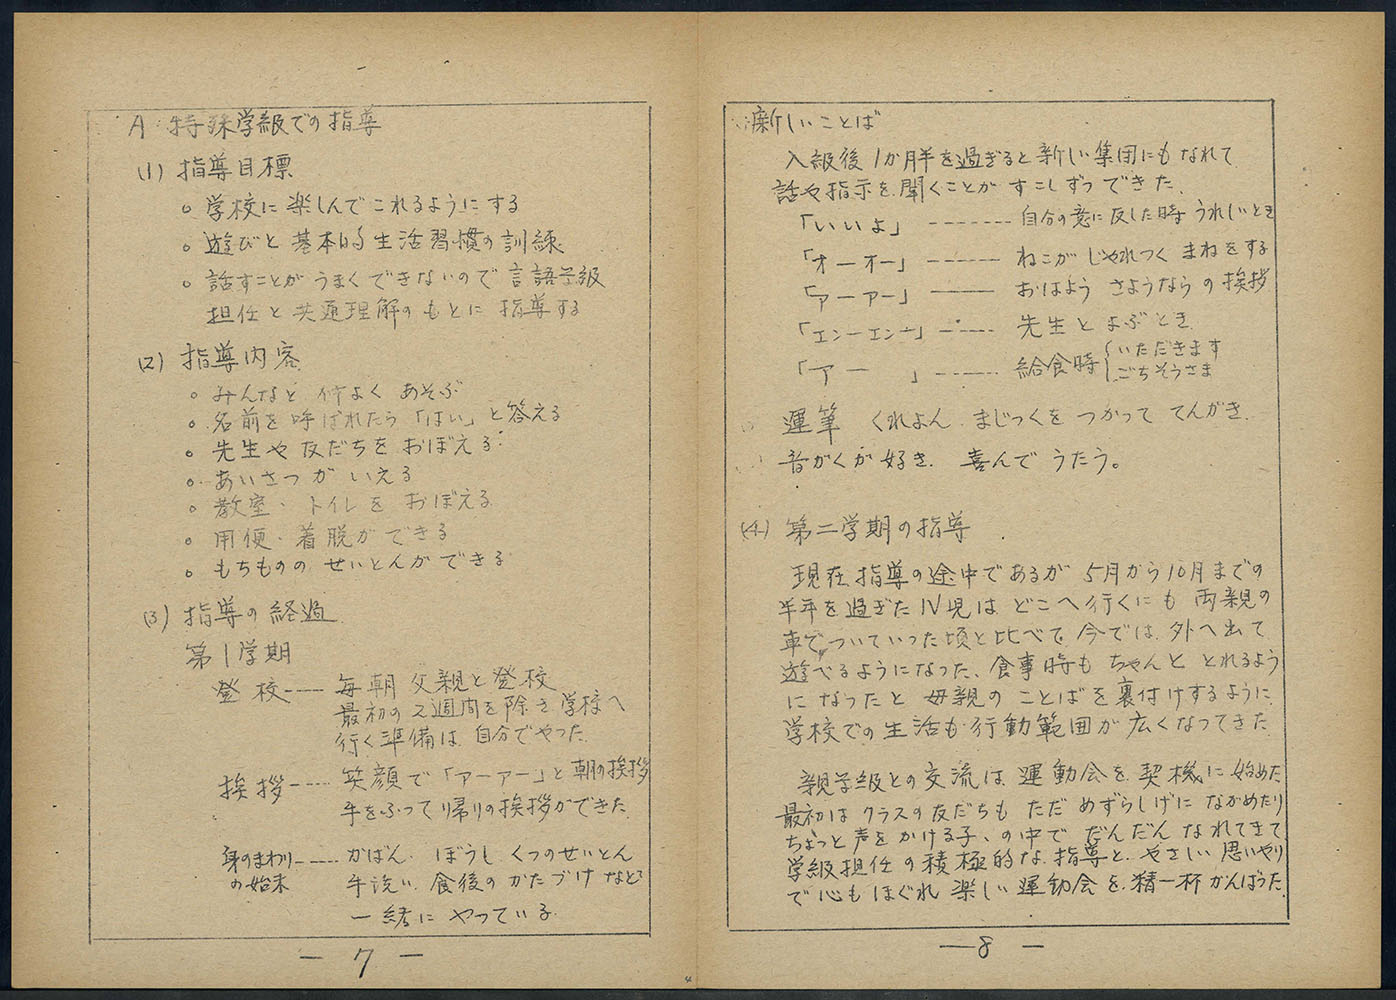 A 特殊学級での指導
(1) 指導目標
○ 学校に楽しんでこれるようにする
○ 遊びと基本的生活習慣の訓練
○ 話すことがうまくできないので言語学級
担任と共通理解のもとに指導する
(2) 指導内容
○ みんなと仲よくあそぶ
○ 名前を呼ばれたら「はい」と答える
○ 先生や友だちをおぼえる
○ あいさつがいえる
○ 教室・トイレをおぼえる
○ 用便・着脱ができる
○ もちもののせいとんができる
(3) 指導の経過
第1学期
登校---- 毎朝父親と登校
最初の2週間を除き学校へ
行く準備は自分でやった
挨拶---- 笑顔で「アーアー」と朝の挨拶
手をふって帰りの挨拶ができた
身のまわり---- かばん、ぼうしくつのせいとん
の始末 手洗い、食後のかたづけなどを
一緒にやっている
— 7 —
新しいことば
入級後1か月半を過ぎると新しい集団にもなれて
話や指示を聞くことがすこしずつできた、
「いいよ」------- 自分の意に反した時 うれしいとき
「オーオー」------ ねこがじゃれつくまねをする
「アーアー」------ おはよう さようならの挨拶
「エンーエンー」------ 先生とよぶとき
「アー 」------ 給食時{いただきます
ごちそうさま
運筆 くれよん、まじっくをつかって てんがき、
音がくが好き、喜んでうたう。
(4) 第二学期の指導
現在指導の途中であるが5月から10月までの
半年を過ぎたN児はどこへ行くにも両親の
車でついていった頃と比べて今では、外へ出て
遊べるようになった、食事時もちゃんととれるよう
になったと母親のことばを裏付けするように
学校での生活も行動範囲が広くなってきた
親学級との交流は運動会を契機に始めた
最初はクラスの友だちもただめずらしげにながめたり
ちょっと声をかける子、の中でだんだんなれてきて
学級担任の積極的な指導と、やさしい思いやり
で心もほぐれ楽しい運動会を精一杯がんばった
— 8 —